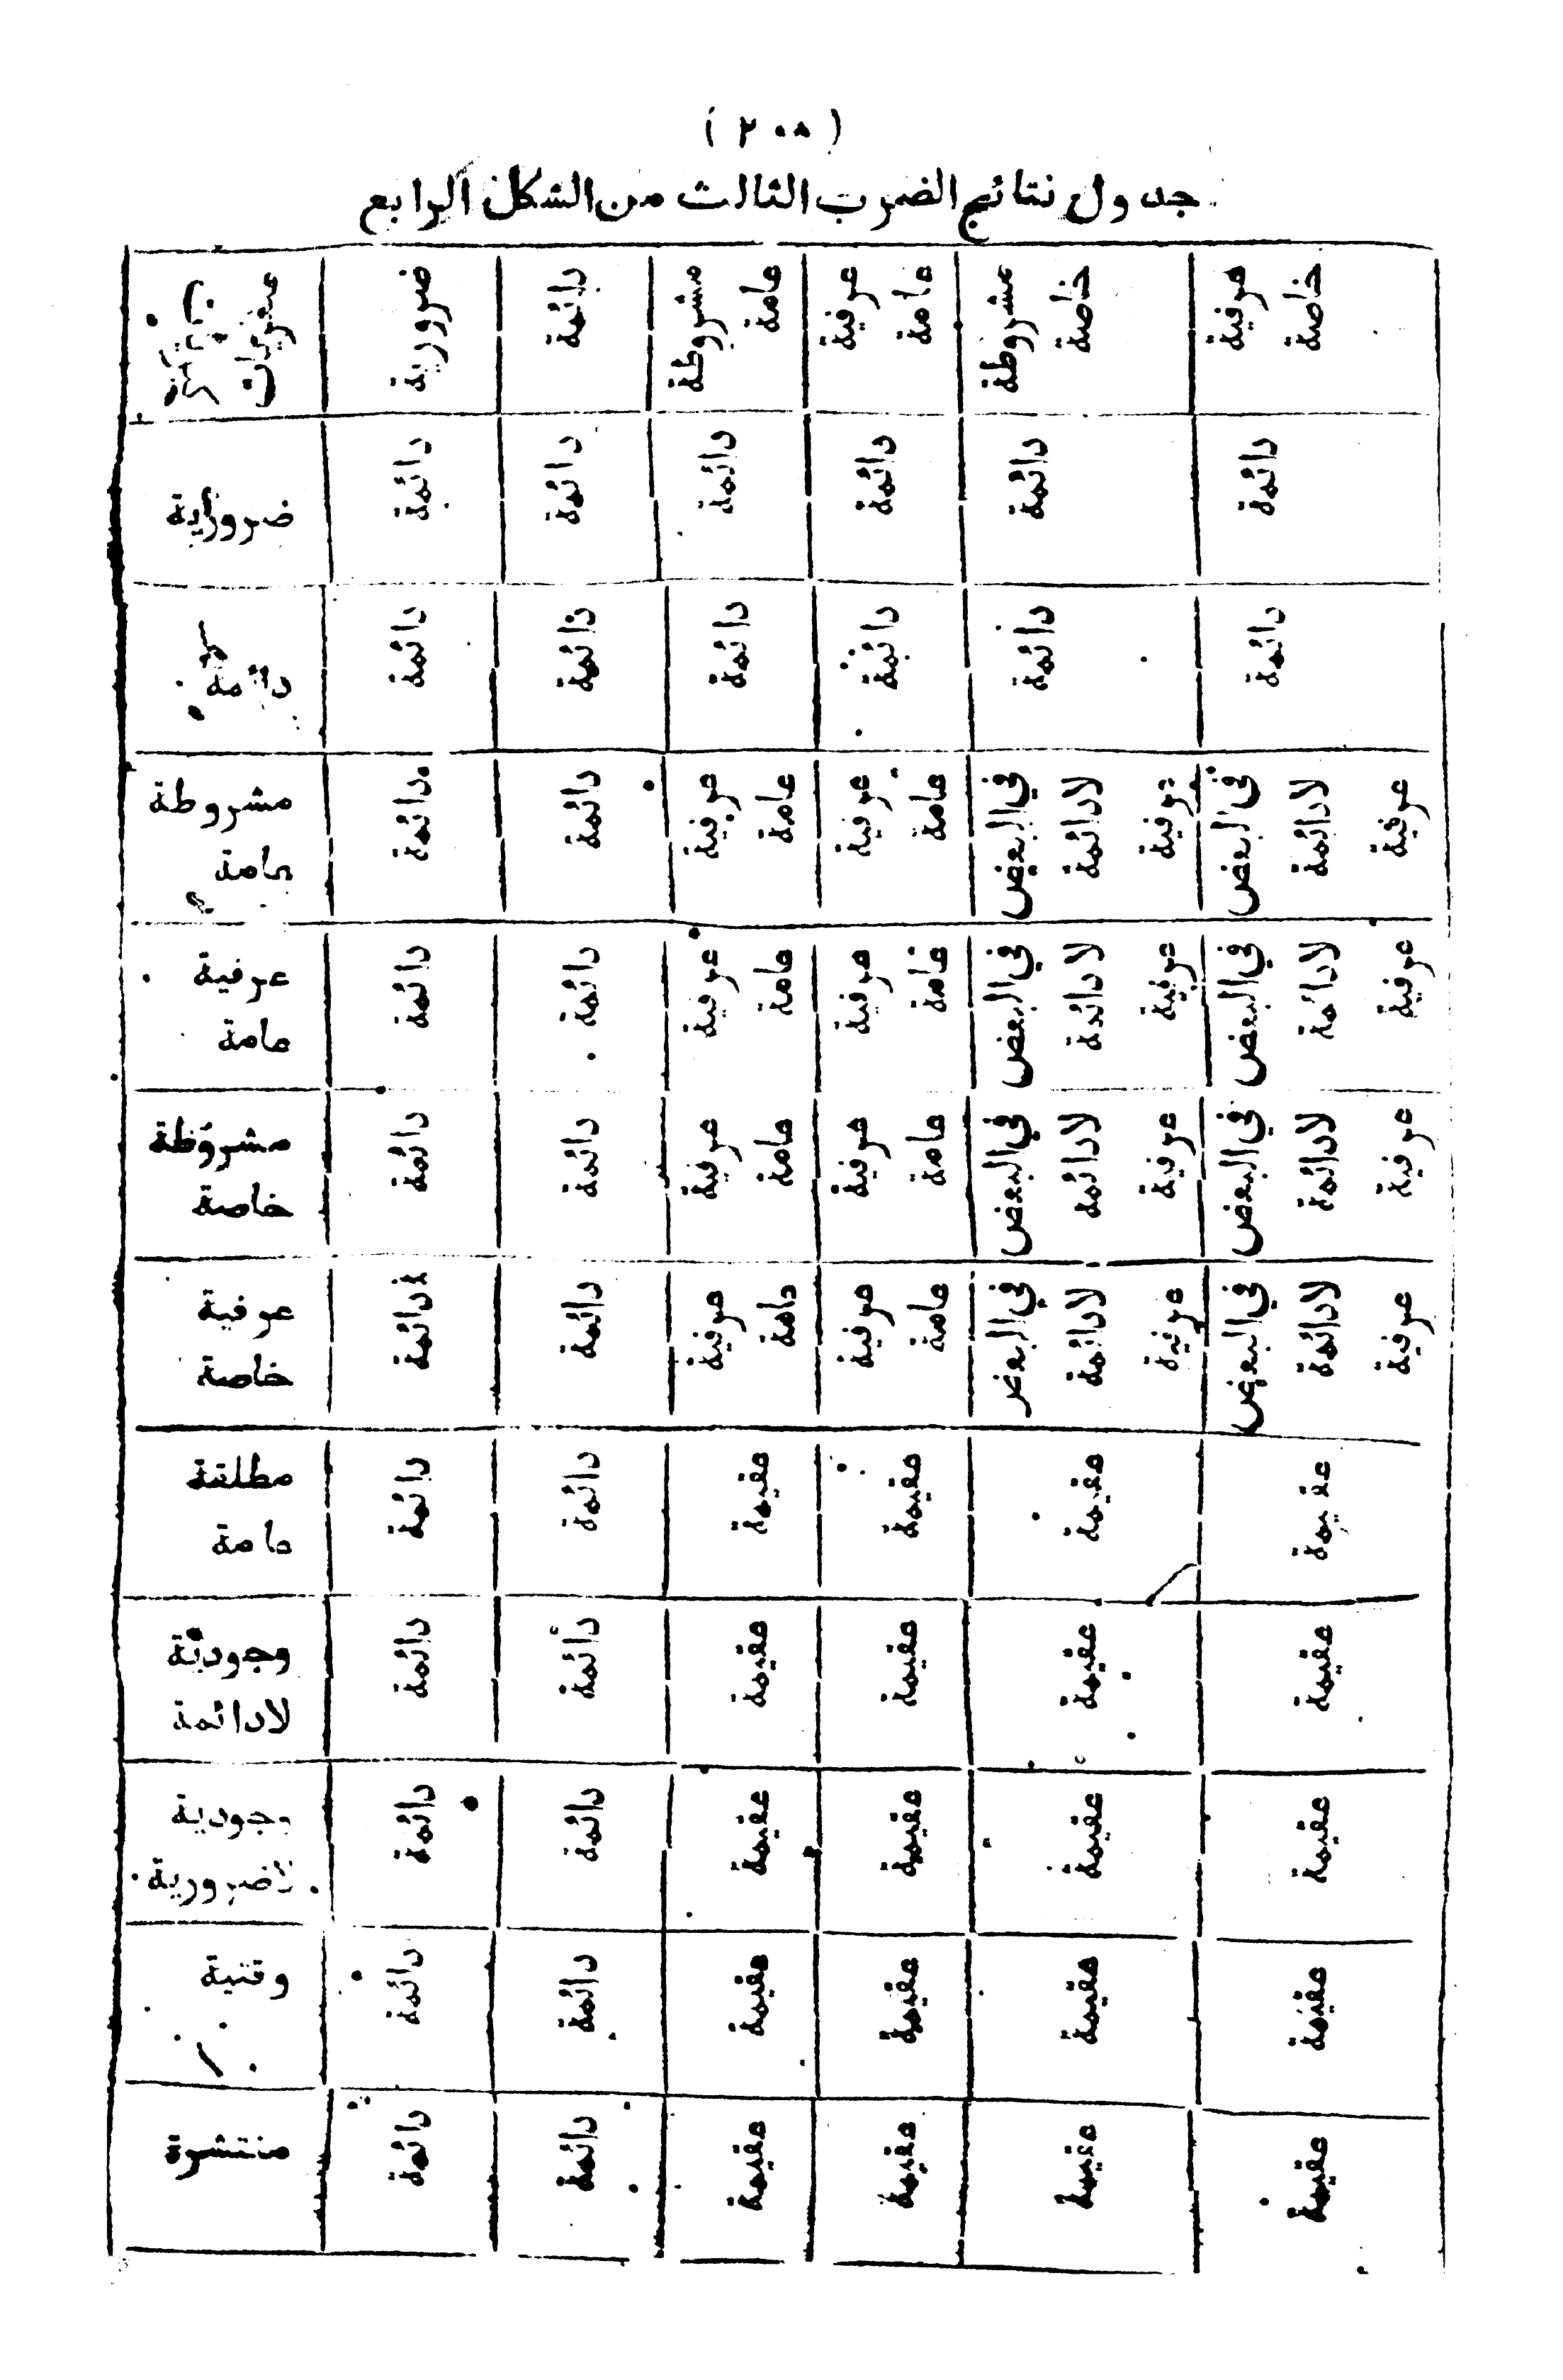 ( ٢٠٨ )
جدول نتائج الضرب الثالث من الشكل الرابع
صغريات ضرورية دائمة مشروطة عامة عرفية عامة مشروطة خاصة عرفية خاصة
ضرورية دائمة دائمة دائمة دائمة دائمة دائمة
دائمة دائمة دائمة دائمة دائمة دائمة دائمة
مشروطة عامة دائمة دائمة عرفية عامة عرفية عامة عرفية لادائمة في البعض عرفية لادائمة في البعض
عرفية عامة دائمة دائمة عرفية عامة عرفية عامة عرفية لادائمة في البعض عرفية لادائمة في البعض
مشروطة خاصة دائمة دائمة عرفية عامة عرفية عامة عرفية لادائمة في البعض عرفية لادائمة في البعض
عرفية خاصة دائمة دائمة عرفية عامة عرفية عامة عرفية لادائمة في البعض عرفية لادائمة في البعض
مطلقة عامة دائمة دائمة عقيمة عقيمة عقيمة عقيمة
وجودية لادائمة دائمة دائمة عقيمة عقيمة عقيمة عقيمة
وجودية لاضرورية دائمة دائمة عقيمة عقيمة عقيمة عقيمة
وقتية دائمة دائمة عقيمة عقيمة عقيمة عقيمة
منتشرة دائمة دائمة عقيمة عقيمة عقيمة عقيمة